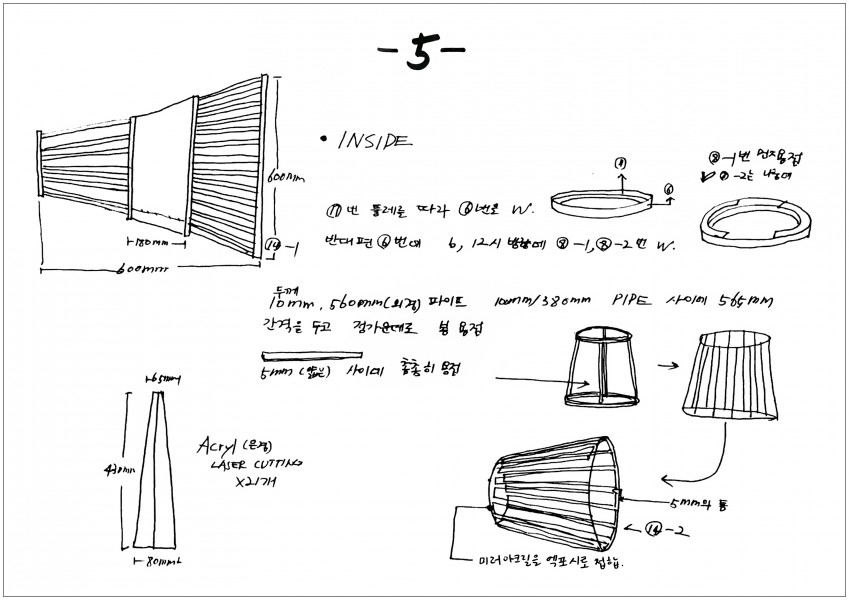 -5-
• INSIDE
600mm
180mm
600mm
⑭-1
⑪
⑥
⑧-1번 먼저용접
⑧-2는 나중에
⑪번 둘레를 따라 ⑥번을 W.
반대편 ⑥번에 6, 12시 방향에 ⑧-1, ⑧-2번 W.
두께
10mm, 560mm(외경) 파이프 10mm/380mm PIPE 사이에 565mm
간격을 두고 정가운데로 봉 용접
5mm (얇은) 사이에 촘촘히 용접
65mm
430mm
80mm
Acryl (은경)
LASER CUTTING
x21개
5mm의 봉
⑭-2
미러아크릴을 엑포시로 접합.